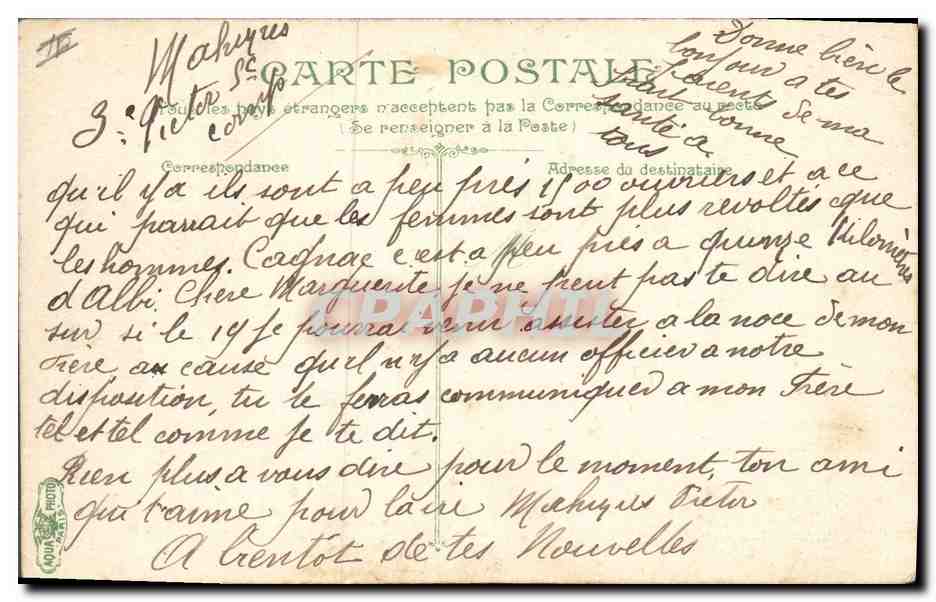 II
Maheyres
Victor Sc
3e corps
Donne bien le
bonjour a tes
parents de ma
part bonne
santé a
tous
CARTE POSTALE
Tous les pays étrangers n'acceptent pas la Correspondance au recto
(Se renseigner à la Poste)
Correspondance
Adresse du destinataire
qu'il y a ils sont a peu près 1500 ouvriers et a ce
qui parrait que les femmes sont plus revoltés que
les hommes. Cagnac c'est a peu près a quinze kilomètres
d'Albi. Chère Marguerite je ne peut pas te dire au
sur si le 19 je pourrai venir assister a la noce de mon
Frère, au cause qu'il n'y a aucun officier a notre
disposition, tu le feras communiquer a mon Frère
tel et tel comme je te dit.
Rien plus a vous dire pour le moment, ton ami
qui t'aime pour la vie Maheyres Victor
A bientôt de tes Nouvelles
CPAPHIL
AQUA PHOTO
PARIS